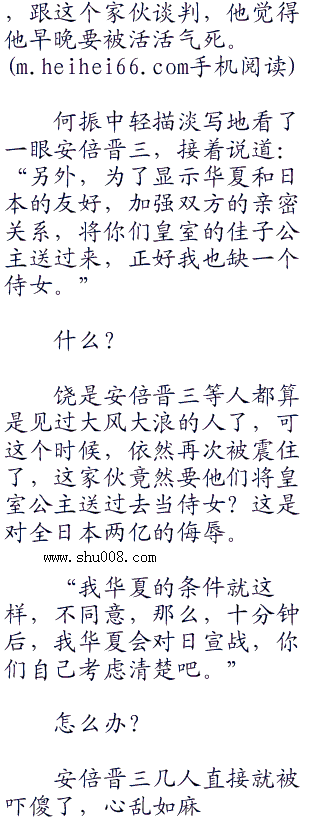 ，跟这个家伙谈判，他觉得
他早晚要被活活气死。
(m.heihei66.com手机阅读)
何振中轻描淡写地看了
一眼安倍晋三，接着说道：
“另外，为了显示华夏和日
本的友好，加强双方的亲密
关系，将你们皇室的佳子公
主送过来，正好我也缺一个
侍女。”
什么？
饶是安倍晋三等人都算
是见过大风大浪的人了，可
这个时候，依然再次被震住
了，这家伙竟然要他们将皇
室公主送过去当侍女？这是
对全日本两亿的侮辱。
www.shu008.com
“我华夏的条件就这
样，不同意，那么，十分钟
后，我华夏会对日宣战，你
们自己考虑清楚吧。”
怎么办？
安倍晋三几人直接就被
吓傻了，心乱如麻